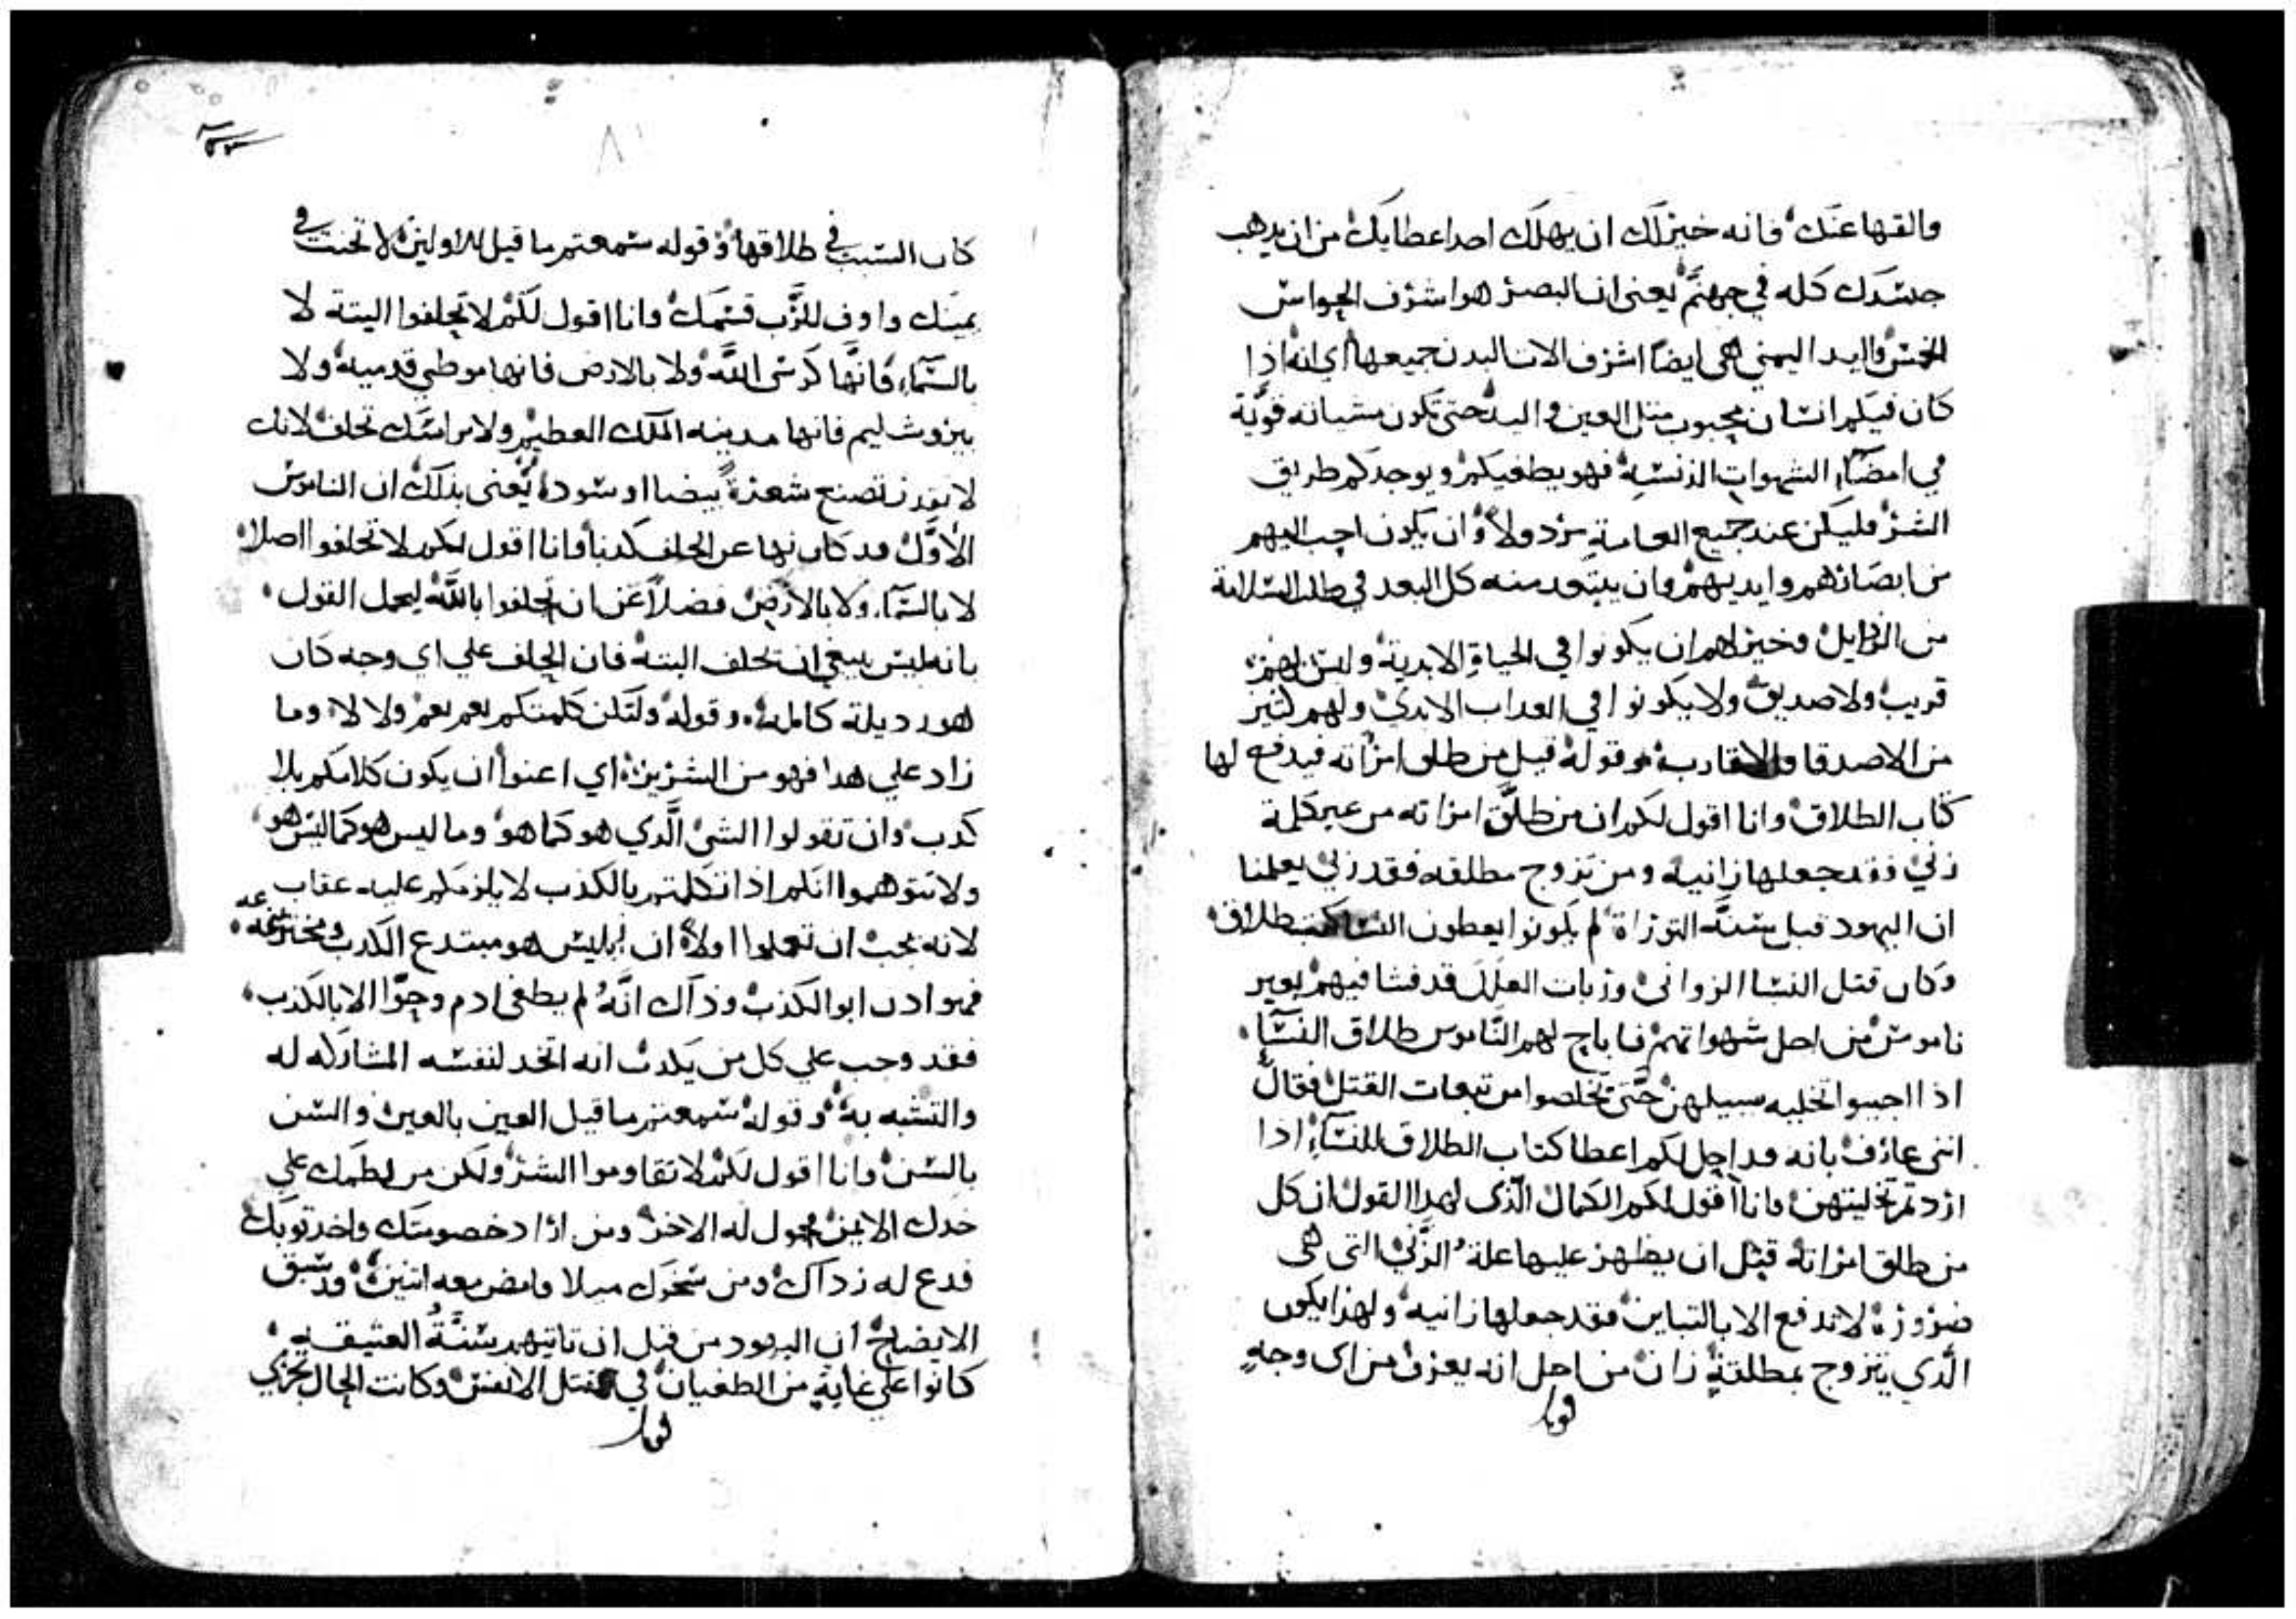 والقها عنك فانه خير لك ان يهلك احد اعطايك من ان يدهب
جسدك كله في جهنم يعني ان البصر هو اشرف الحواس
الخمس واليد اليمني هي ايضا اشرف الات البدن جميعها اي انه اذا
كان فيكم انسان محبوب مثل العين واليد حتي تكون مشيانه قوية
في امضاء الشهوات الدنسه فهو يطغيكم ويوجدكم طريق
الشر فليكن عند جميع العامة مردولا وان يكون احب اليهم
من ابصارهم وايديهم وان يبتعد منه كل البعد في طلب السلامة
من الردايل وخير لهم ان يكونوا في الحياة الابدية وليس لهم
قريب ولا صديق ولا يكونوا في العداب الابدي ولهم كثير
من الاصدقا والاقارب وقوله قيل من طلق امراته فيدفع لها
كتاب الطلاق وانا اقول لكم ان من طلق امراته من غير كلمة
زني فقد جعلها زانيه ومن تزوج مطلقه فقد زني يعلمنا
ان اليهود قبل سنة التوراة لم يكونوا يعطون النسا كتب طلاق
وكان قتل النسا الزواني وربات العلل قد فشا فيهم بغير
ناموس من اجل شهواتهم فاباح لهم الناموس طلاق النسا
اذا احبوا تخليه سبيلهن حتي تخلصوا من تبعات القتل فقال
انني عارف بانه قد احل لكم اعطا كتاب الطلاق للنساء اذا
اردتم تخليتهن وانا اقول لكم الكمال الذي لهدا القول ان كل
من طلق امراته قبل ان يظهر عليها علة الزني التي هي
ضرورة لا تدفع الا بالتباين فقد جعلها زانيه ولهذا يكون
الذي يتزوج بمطلقة زان من اجل انه يعرف من اي وجه
كان السبب في طلاقها وقوله سمعتم ما قيل للاولين لا تحنث في
يمينك واوف للرب قسمك وانا اقول لكم لا تحلفوا البتة لا
بالسماء فانها كرسي الله ولا بالارض فانها موطي قدميه ولا
بيروشليم فانها مدينه الملك العظيم ولا براسك تحلف لانك
لا تقدر تصنع شعرة بيضا او سودا يعني بذلك ان الناموس
الاول قد كان نها عن الحلف كدبا وانا اقول لكم لا تحلفوا اصلا
لا بالسماء ولا بالارض فضلا عن ان تحلفوا بالله ليعمل القول
بانه ليس ينبغي ان تحلف البتة فان الحلف علي اي وجه كان
هو رديلة كامله وقوله ولتكن كلمتكم نعم نعم ولا لا وما
زاد علي هدا فهو من الشرير اي اعنوا ان يكون كلامكم بلا
كدب وان تقولوا الشي الذي هو كما هو وما ليس هو كما ليس هو
ولا تتوهموا انكم اذا تكلمتم بالكذب لا يلزمكم عليه عقاب
لانه يجب ان تعلموا اولا ان ابليس هو مبتدع الكدب ومخترعه
فهو ادن ابو الكذب وذاك انه لم يطغي ادم وحوا الا بالكذب
فقد وجب علي كل من يكدب انه اتخد لنفسه المشاركه له
والتشبه به وقوله سمعتم ما قيل العين بالعين والسن
بالسن وانا اقول لكم لا تقاوموا الشر ولكن من لطمك علي
خدك الايمن فحول له الاخر ومن اراد خصومتك واخد توبك
فدع له رداك ومن سخرك ميلا فامض معه اتنين وقد سبق
الايضاح ان اليهود من قبل ان تاتيهم سنة العتيقه
كانوا علي غاية من الطغيان في قتل الانفس وكانت الحال تجري